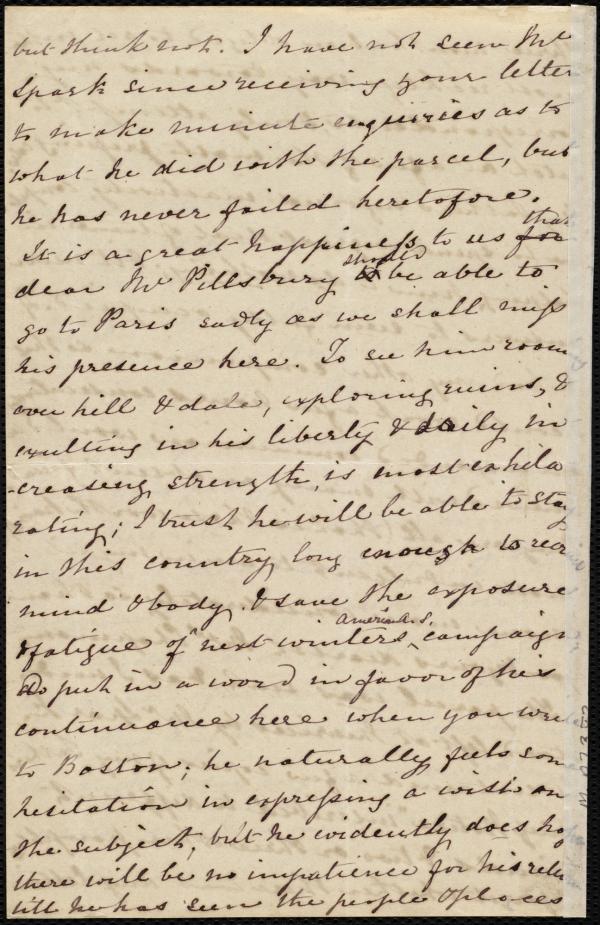 but think not. I have not seen Mr
Spark since receiving your letter
to make minute enquiries as to
what he did with the parcel, but
he has never failed heretofore.
It is a great happiness to us for that
dear Mr Pillsbury to should be able to
go to Paris sadly as we shall miss
his presence here. To see him roam
over hill & dale, exploring ruins, &
exulting in his liberty & daily in
-creasing strength, is most exhila
rating; I trust he will be able to stay
in this country long enough to recr
mind & body. & save the exposure
& fatigue of next winters Americn A. S. campaign
Do put in a word in favor of his
continuance here when you wri
to Boston; he naturally feels som
hesitation in expressing a wish on
the subject, but he evidently does ho
there will be no impatience for his retu
till he has seen the people & places